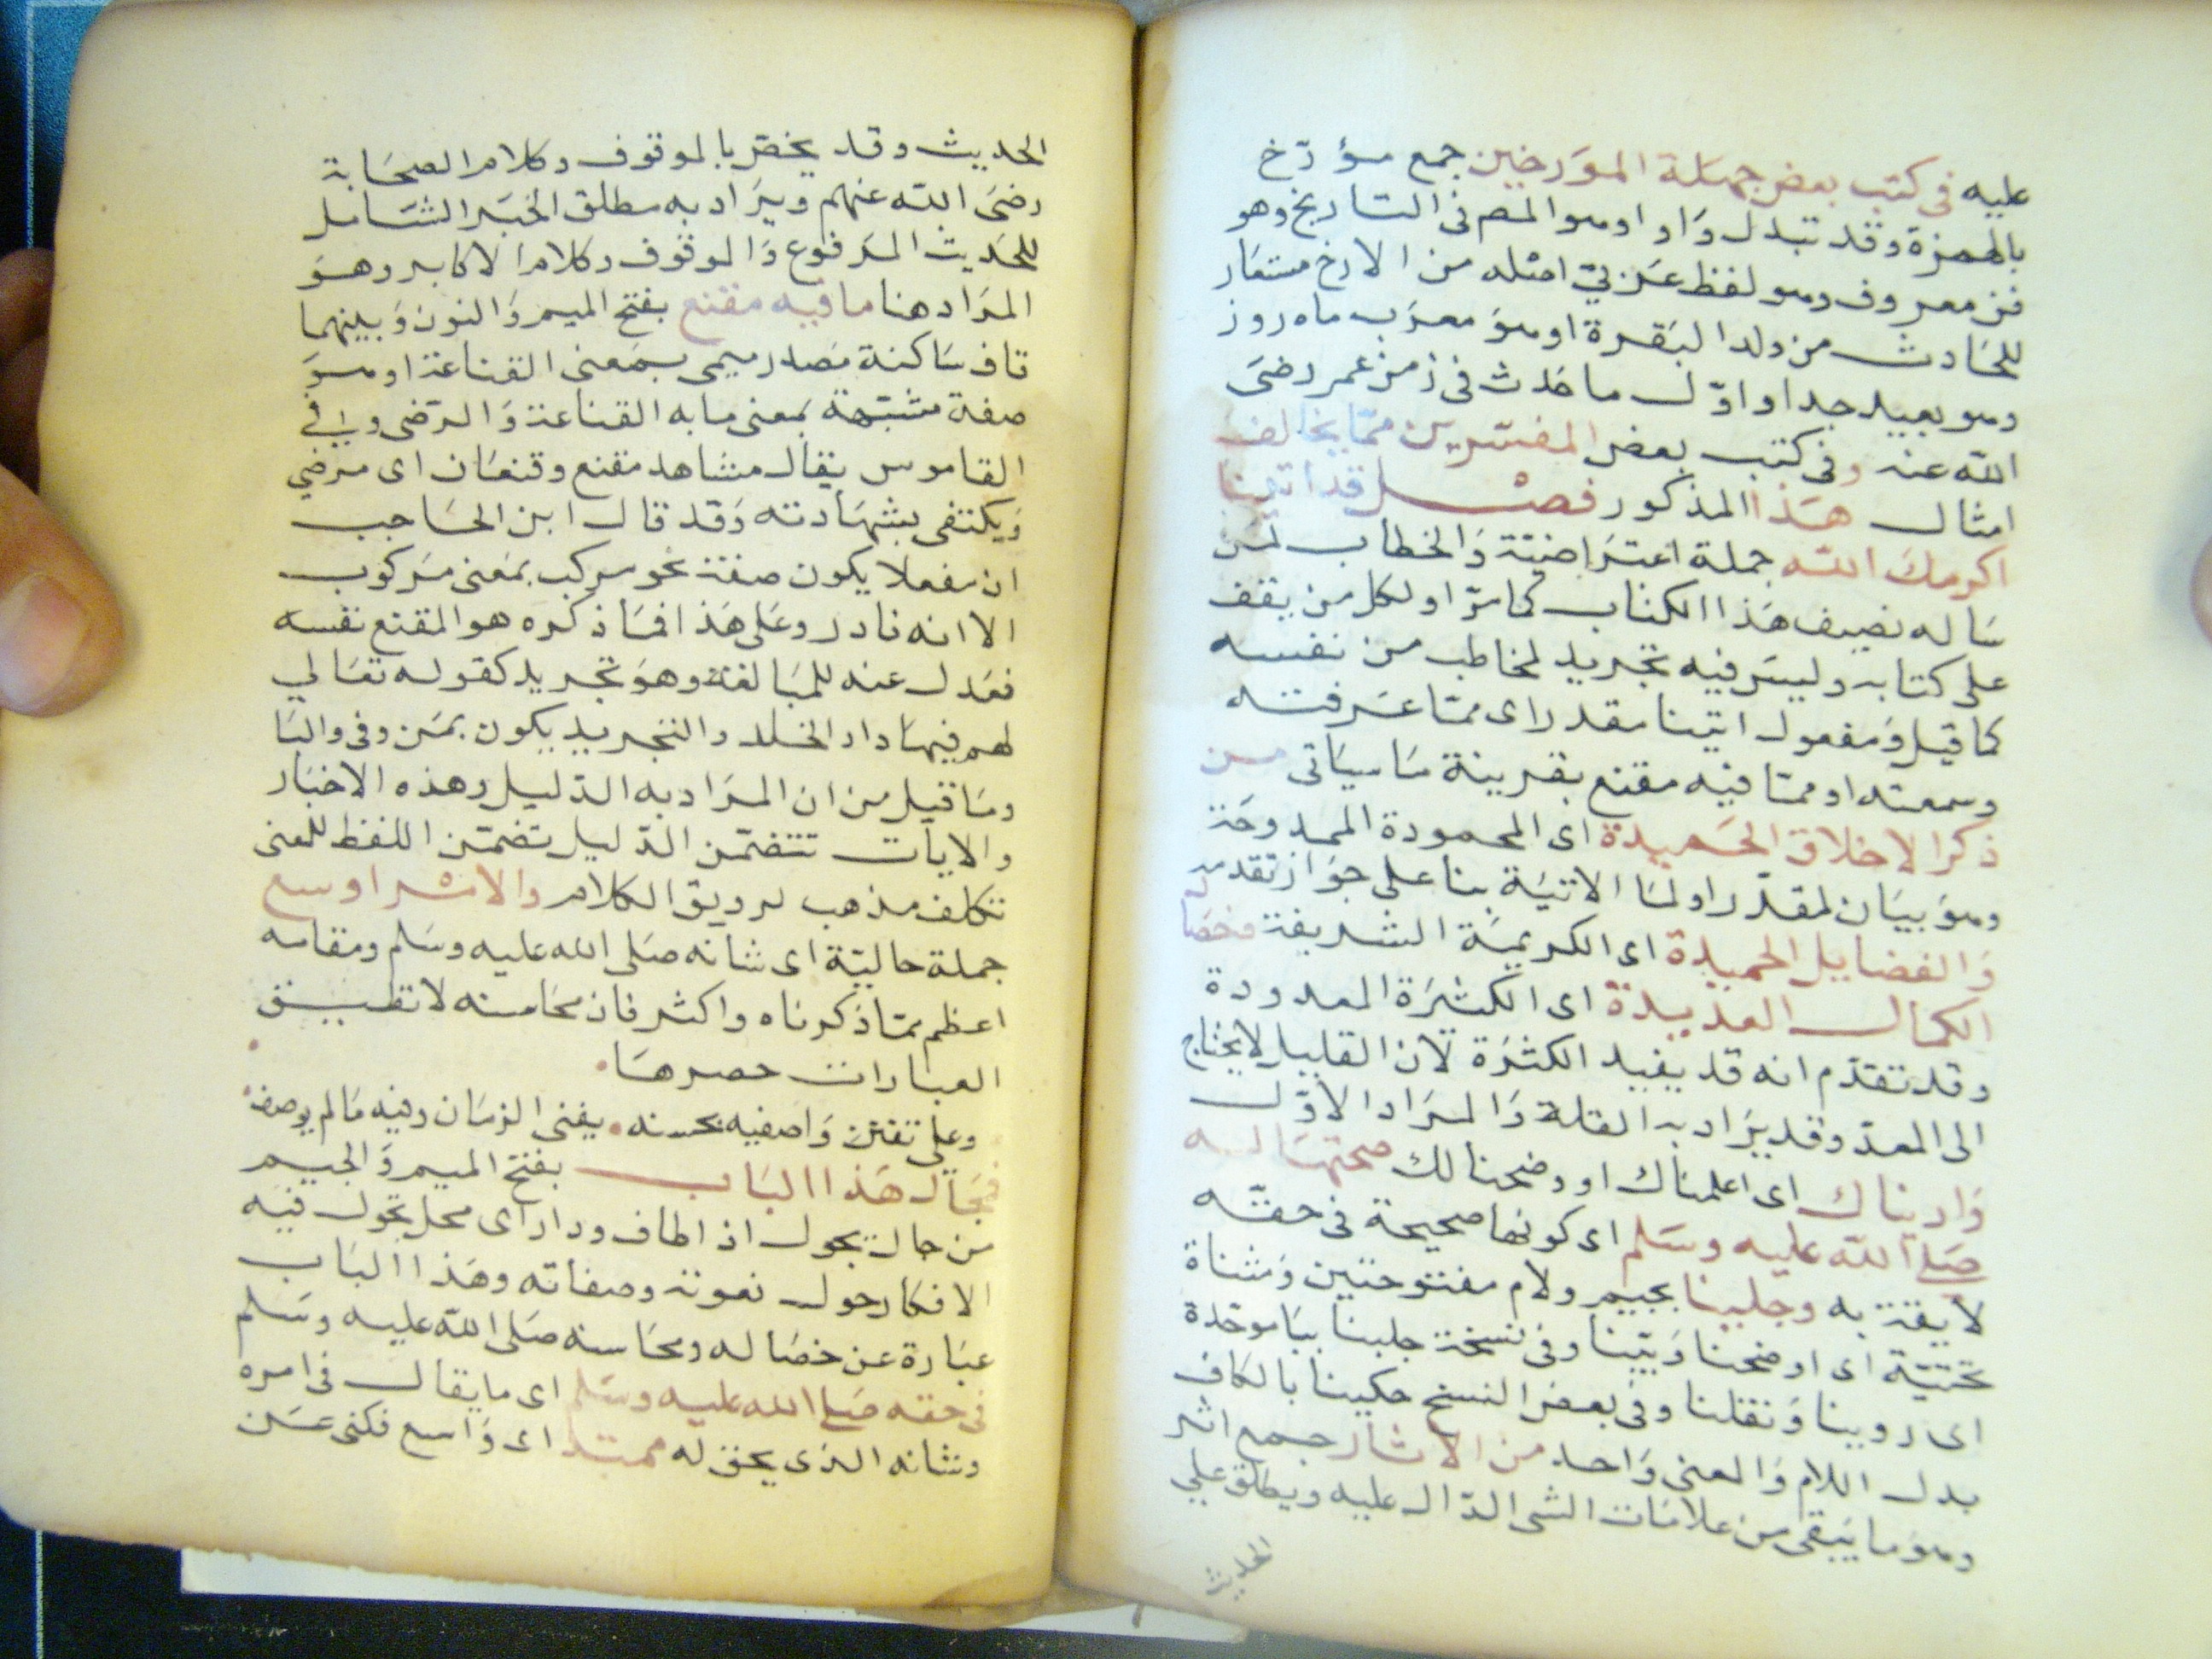 عليه فى كتب بعض جملة المورخين جمع مؤرخ
بالهمزة وقد تبدل واوا وهو العالم فى التاريخ وهو
فن معروف وهو لفظ عربي اصله من الارخ مستعار
للحادث من ولد البقرة او هو معرب ماه روز
وهو بعيد جدا واول ما حدث فى زمن عمر رضى
الله عنه وفى كتب بعض المفسرين مما يخالف
امثال هذا المذكور فصل قد اتينا
اكرمك الله جملة اعتراضية والخطاب لمن
ساله تصنيف هذا الكتاب كما مر او لكل من يقف
على كتابه وليس فيه تجريد لمخاطب من نفسه
كما قيل ومفعول اتينا مقدر اى مما عرفته
وسمعته او مما فيه مقنع بقرينة ما سياتى من
ذكر الاخلاق الحميدة اى المحمودة الممدوحة
وهو بيان لمقدر او لما الاتية بنا على جواز تقدمه
والفضايل المجيدة اى الكريمة الشريفة وخصال
الكمال العديدة اى الكثيرة المعدودة
وقد تقدم انه قد يفيد الكثرة لان القليل لا يحتاج
الى العد وقد يراد به القلة والمراد الاول
واريناك اى اعلمناك او وضحنا لك صحتها له
صلى الله عليه وسلم اى كونها صحيحة فى حقه
لايقة به وجلينا بجيم ولام مفتوحتين ومثناة
تحتية اى اوضحنا وبينا وفى نسخة جلبنا ببا موحدة
اى روينا ونقلنا وفى بعض النسخ حكينا بالكاف
بدل اللام والمعنى واحد من الاثار جمع اثر
وهو ما يبقى من علامات الشى الدال عليه ويطلق على
الحديث
الحديث وقد يخص بالموقوف وكلام الصحابة
رضى الله عنهم ويراد به مطلق الخبر الشامل
للحديث المرفوع والموقوف وكلام الاكابر وهو
المراد هنا ما فيه مقنع بفتح الميم والنون وبينهما
قاف ساكنة مصدر ميمى بمعنى القناعة او هو
صفة مشبهة بمعنى ما به القناعة والرضى وفى
القاموس يقال مشاهد مقنع وقنعان اى مرضي
ويكتفى بشهادته وقد قال ابن الحاجب
ان مفعلا يكون صفة نحو مركب بمعنى مركوب
الا انه نادر وعلى هذا فما ذكره هو المقنع نفسه
فعدل عنه للمبالغة وهو تجريد كقوله تعالي
لهم فيها دار الخلد والتجريد يكون بمن وفى والبا
وما قيل من ان المراد به الدليل وهذه الاخبار
والايات تتضمن الدليل تضمن اللفظ للمعنى
تكلف مذهب لرونق الكلام والامر اوسع
جملة حالية اى شانه صلى الله عليه وسلم ومقامه
اعظم مما ذكرناه واكثر فان محاسنه لا تطيق
العبارات حصرها
وعلى تفنن واصفيه بحسنه يفنى الزمان وفيه مالم يوصف
فمجال هذا الباب بفتح الميم والجيم
من جال يجول اذا طاف ودار اى محل تجول فيه
الافكار حول نعوته وصفاته وهذا الباب
عبارة عن خصاله ومحاسنه صلى الله عليه وسلم
فى حقه صلى الله عليه وسلم اى ما يقال فى امره
وشانه الذى يحق له ممتد اى واسع فكنى عن